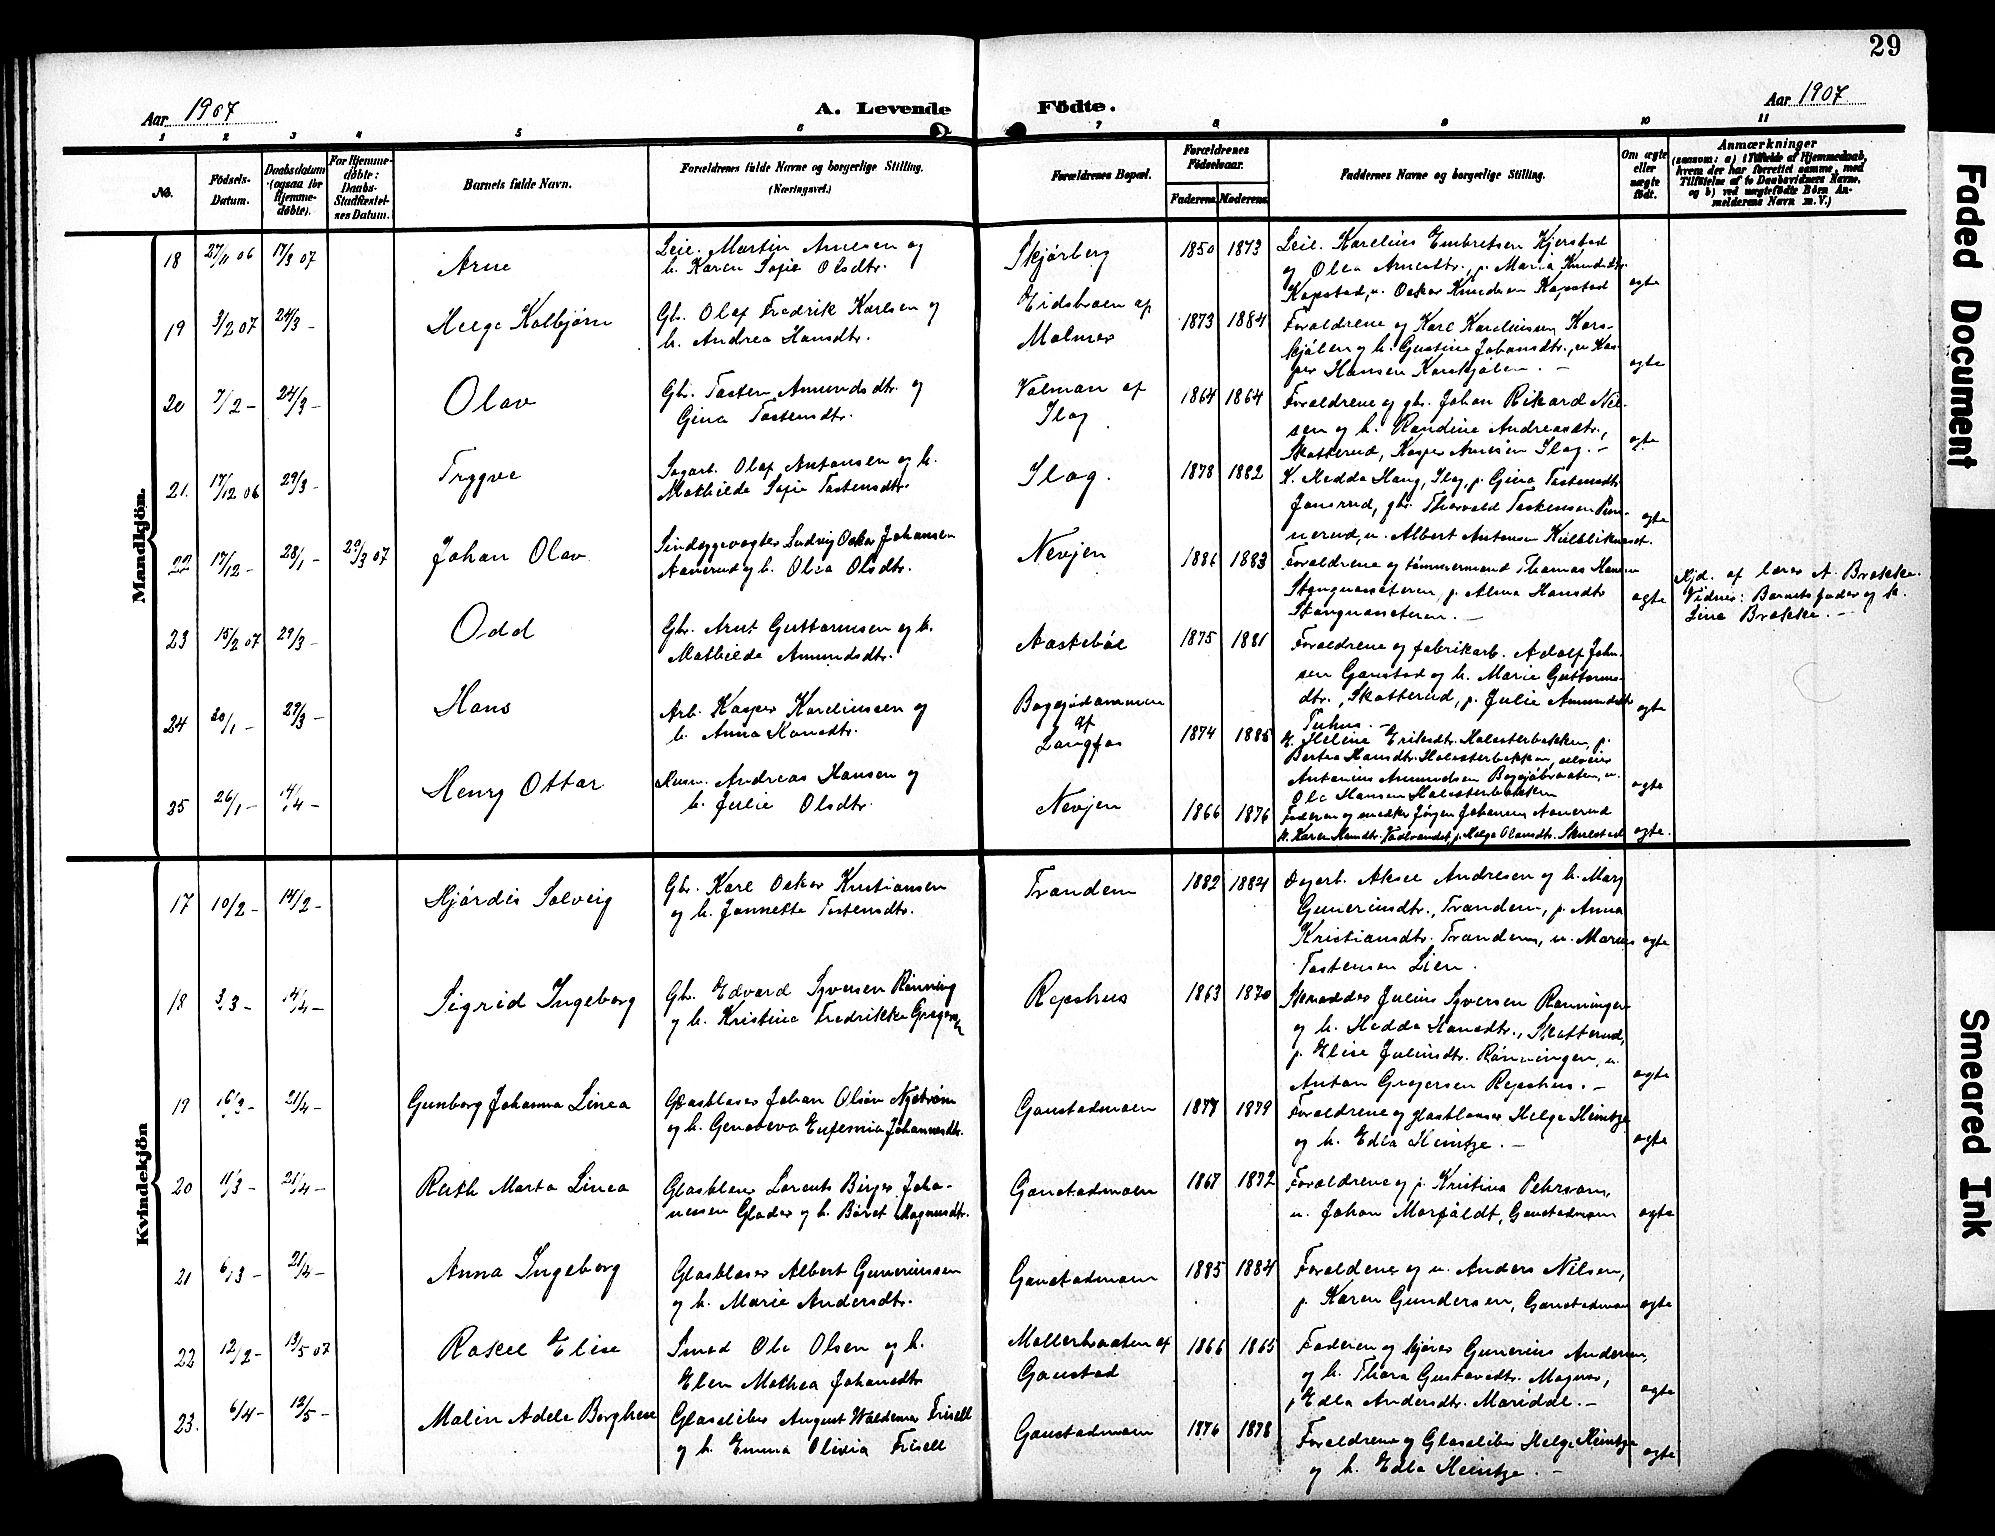 29
Aar 1907
A. Levende Födte.
Aar 1907
1 2 3 4 5 6 7 8 9 10 11
No.
Födsels-Datum.
Daabsdatum (ogsaa for Hjemme-døbte).
For Hjemme-døbte: Daabs-Stadfæstel-ses Datum.
Barnets fulde Navn.
Forældrenes fulde Navne og borgerlige Stilling. (Næringsvei.)
Forældrenes Bopæl.
Forældrenes Födselsaar.
Faderens Moderens
Faddernes Navne og borgerlige Stilling.
Om ægte eller uægte født.
Anmærkninger
(saasom: a) i Tilfælde af Hjemmedaab, hvem der har forrettet samme, med Tilføielse af to Daabsvidners Navne, og b) ved uægtefødte Børn An-melderens Navn m. V.)
Mandkjön.
18 27/11 06 17/3 07 Arne
Leie. Martin Arnesen og
h. Karen Sofie Olsdtr.
Skjørberg 1850 1873
Leie. Karelius Embretsen Kjerstad
og Olea Arnesdtr., p. Maria Knudsdtr.
Kopstad, u. Oskar Knudsen Kopstad
ægte
19 3/2 07 24/3 - Helge Kolbjørn
Gbr. Olaf Fredrik Karlsen og
h. Andrea Hansdtr.
Eidsbraaten af
Malmer
1873 1884
Forældrene og Karl Karelinssen Kors-
kjølen og h. Gustina Johansdtr., u. Kas-
per Hansen Korskjølen. -
ægte
20 7/2 - 24/3 - Olav
Gbr. Tosten Amundsdtr. og
Gina Tostensdtr.
Volman af
Ilag
1864 1864
Forældrene og gbr. Johan Rikard Nil-
sen og h. Randine Andreasdtr.,
Skotterud, Kasper Arnesen Ilag. -
ægte
21. 17/12 06 29/3 - Trygve
Sagarb. Olaf Antonsen og h.
Mathilde Sofie Tostensdtr.
Ilag. 1878 1882
K. Hedda Haug, Ilag, p. Gina Tostensdtr
Jonsrud, gbr. Thorvald Tostensen
nerud, u. Albert Antonsen
ægte
22 17/12 - 28/1 - 29/3 07 Johan Olav
Oskar Johansen
Aanerud og h. Olea Olsdtr.
Nevjen 1886 1883
Forældrene og tømmermand Thomas Hansen
p. Alma Hansdtr
ægte
Hjd. af lærer A. Brække.
Vidner: Barnets fader og h.
Lina Brække. -
23 15/2 07 29/3 - Odd
Gbr. Arnt Guttormsen og h.
Mathilde Amundsdtr.
Aastebøl 1875 1881
Forældrene og fabrikarb. Adolf Joh-
sen Gaustad og h. Marie Guttorms-
dtr., Skotterud, p. Julie Amundsdtr
Tuhus. -
ægte
24 20/1 - 29/3 - Hans
Arb. Kasper Karelinssen og
h. Anna Hansdtr.
Bogsjødammen
af
Langfos
1874 1885
K. Helene Eriksdtr. Holesterbakken, p.
Bertea Hansdtr. Holesterbakken,
Antonius Amundsen Bogsjøbraaten, u.
Ole Hansen Holesterbakken
ægte
25 26/1 - 14/4 - Henry Ottar
Husm. Andreas Hansen og
h. Julie Olsdtr.
Nevjen 1866 1876
Faderen og snedker Jørgen Johansen Aanerud
K. Karen p. Helga Olausdtr. Skulestad
ægte.
Kvindekjön
17 10/2 - 14/2 - Hjørdis Solveig
Gbr. Karl Oskar Kristiansen
og h. Jannetta Tostensdtr.
Trandem 1882 1884
Dagarb. Aksel Andresen og h. Mary
Gunerinsdtr., Trandem, p. Anna
Kristiansdtr. Trandem, u. Marius
Tostensen Lien.
ægte
18 3/3 - 14/4 - Sigrid Ingeborg
Gbr. Edvard Syversen Rønning
og h. Kristine Fredrikke Gregersd.
Repshus 1863 1870
Skrædder Julius Syversen Rønningen
og h. Hedda Hansdtr., Skotterud,
p. Elise Julinsdtr. Rønningen, u.
Anton Gregersen Repshus. -
ægte
19 16/3 - 21/4 - Gunborg Johanna Linea
Glasblaser Johan Olsøn Nystrøm
og h. Genoveva Eufemia Johannesdtr.
Gaustadmoen 1877 1879
Forældrene og glasblaser Helge Heintze
og h. Edla Heintze. -
ægte
20 11/3 - 21/4 - Ruth Marta Linea
Glasblaser Lorents Birger Joha-
nessen Glader og h. Børet Magnusdtr.
Gaustadmoen 1867 1872
Forældrene og p. Kristina Pehrson,
u. Johan Morfeldt, Gaustadmoen
ægte
21 6/3 - 21/4 - Anna Ingeborg
Glasblaser Albert Gunerinssen
og h. Marie Andersdtr.
Gaustadmoen 1885 1884
Forældrene og u. Anders Nilsen,
p. Karen Gundersen, Gaustadmoen
ægte
22 12/2 - 13/5 07 Rakel Elise
Smed Ole Olsen og h.
Elen Mathea Johansdtr
Mollerbraaten af
Gaustad
1866 1865
Faderen og kjører Gunerius Andersen,
og h. Thora Gustavsdtr. Magnor,
p. Edla Andersdtr. Moridal. -
ægte
23. 6/4 - 12/5 - Malin Adele Borghese
Glassliber August Waldemar Frisell
og h. Emma Olivia Frisell
Gaustadmoen 1876 1878
Forældrene og Glassliber Helge Heintze
og h. Edla Heintze. -
ægte
Faded Document
Smeared Ink